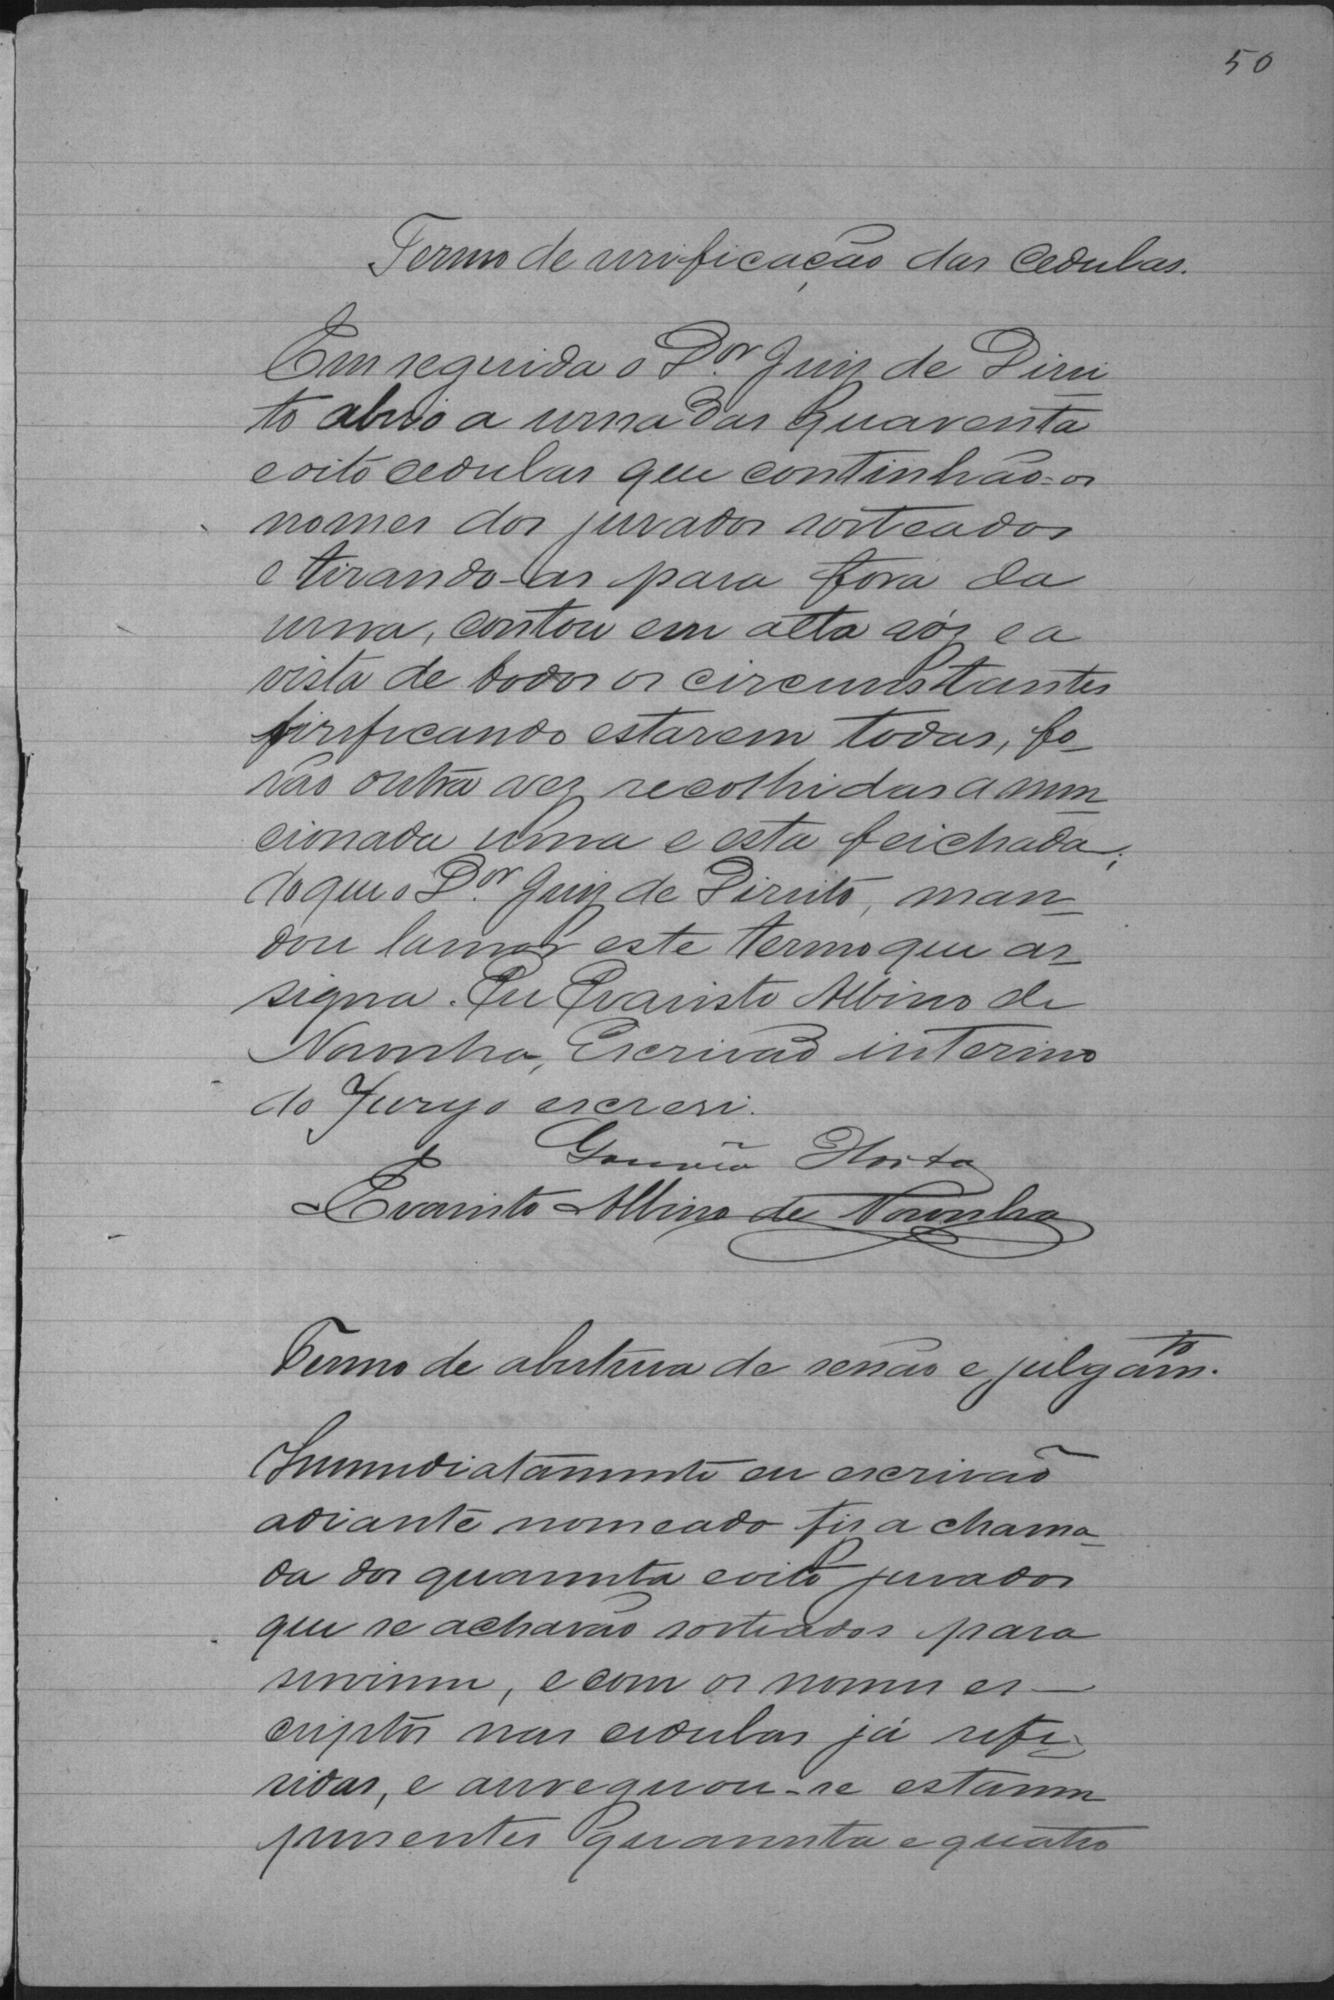 50
Termo de verificação das cedulas.
Em seguida o D.or Juiz de Direi
to abrio a urna das Quarenta
e oito cedulas que continhão os
nomes dos jurados sorteados
e tirando-as para fora da
urna, contou em alta vóz e a
vista de todos os circumstantes
virificando estarem todas, fo-
rão outra vez recolhidas a men
cionada urna e esta feichada;
do que o D.or Juiz de Direito, man-
dou lavrar este termo que as-
signa. Eu Evaristo Albino de
Noronha, Escrivão interino
do Jury o escrevi.
Gouvêa Horta
Evaristo Albino de Noronha
Termo de abertura de sessão e julgam.to
Immediatamente eu escrivão
adiante nomeado fis a chama-
da dos quarenta e oito jurados
que se achavão sorteados para
servirem, e com os nomes es-
criptos nas cedulas já refe-
ridas, e avereguou-se estarem
presentes quarenta e quatro